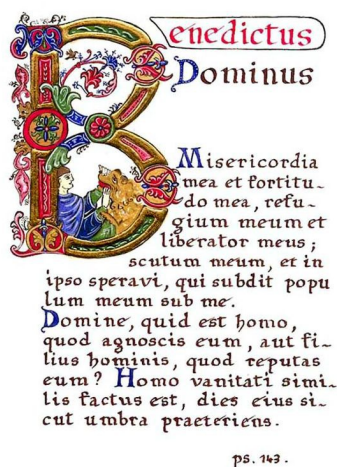 Benedictus
Dominus
Misericordia
mea et fortitu-
do mea, refu-
gium meum et
liberator meus;
scutum meum, et in
ipso speravi, qui subdit popu
lum meum sub me.
Domine, quid est homo,
quod agnoscis eum, aut fi-
lius hominis, quod reputas
eum? Homo vanitati simi-
lis factus est, dies eius si-
cut umbra praeteriens.
ps. 143.